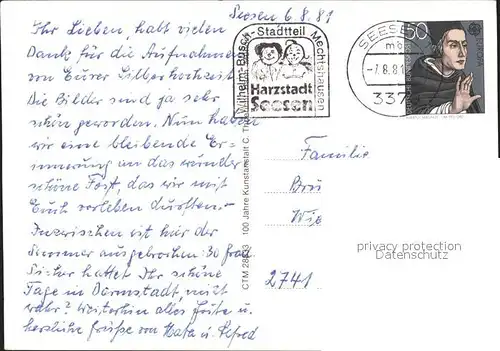 Seesen 6.8.81
Ihr Lieben, habt vielen
Dank für die Aufnahmen
von Eurer Silberhochzeit.
Die Bilder sind ja sehr
schön geworden. Nun haben
wir eine bleibende Er-
innerung an das wunder
schöne Fest, das wir mit
Euch verleben durften.-
Inzwischen ist hier der
Sommer ausgebrochen: 30 Grad
Sicher hattet Ihr schöne
Tage in Darmstadt, nicht
wahr? Weiterhin alles Gute u.
herzliche Grüße von u. Alfred
Wilhelm-Busch-Stadtteil Mechtshausen
Harzstadt
Seesen
SEESEN
-7.8.81
337
50
CTM 100 Jahre Kunstanstalt C.
Familie
Brü
Wie
2741
privacy protection
Datenschutz